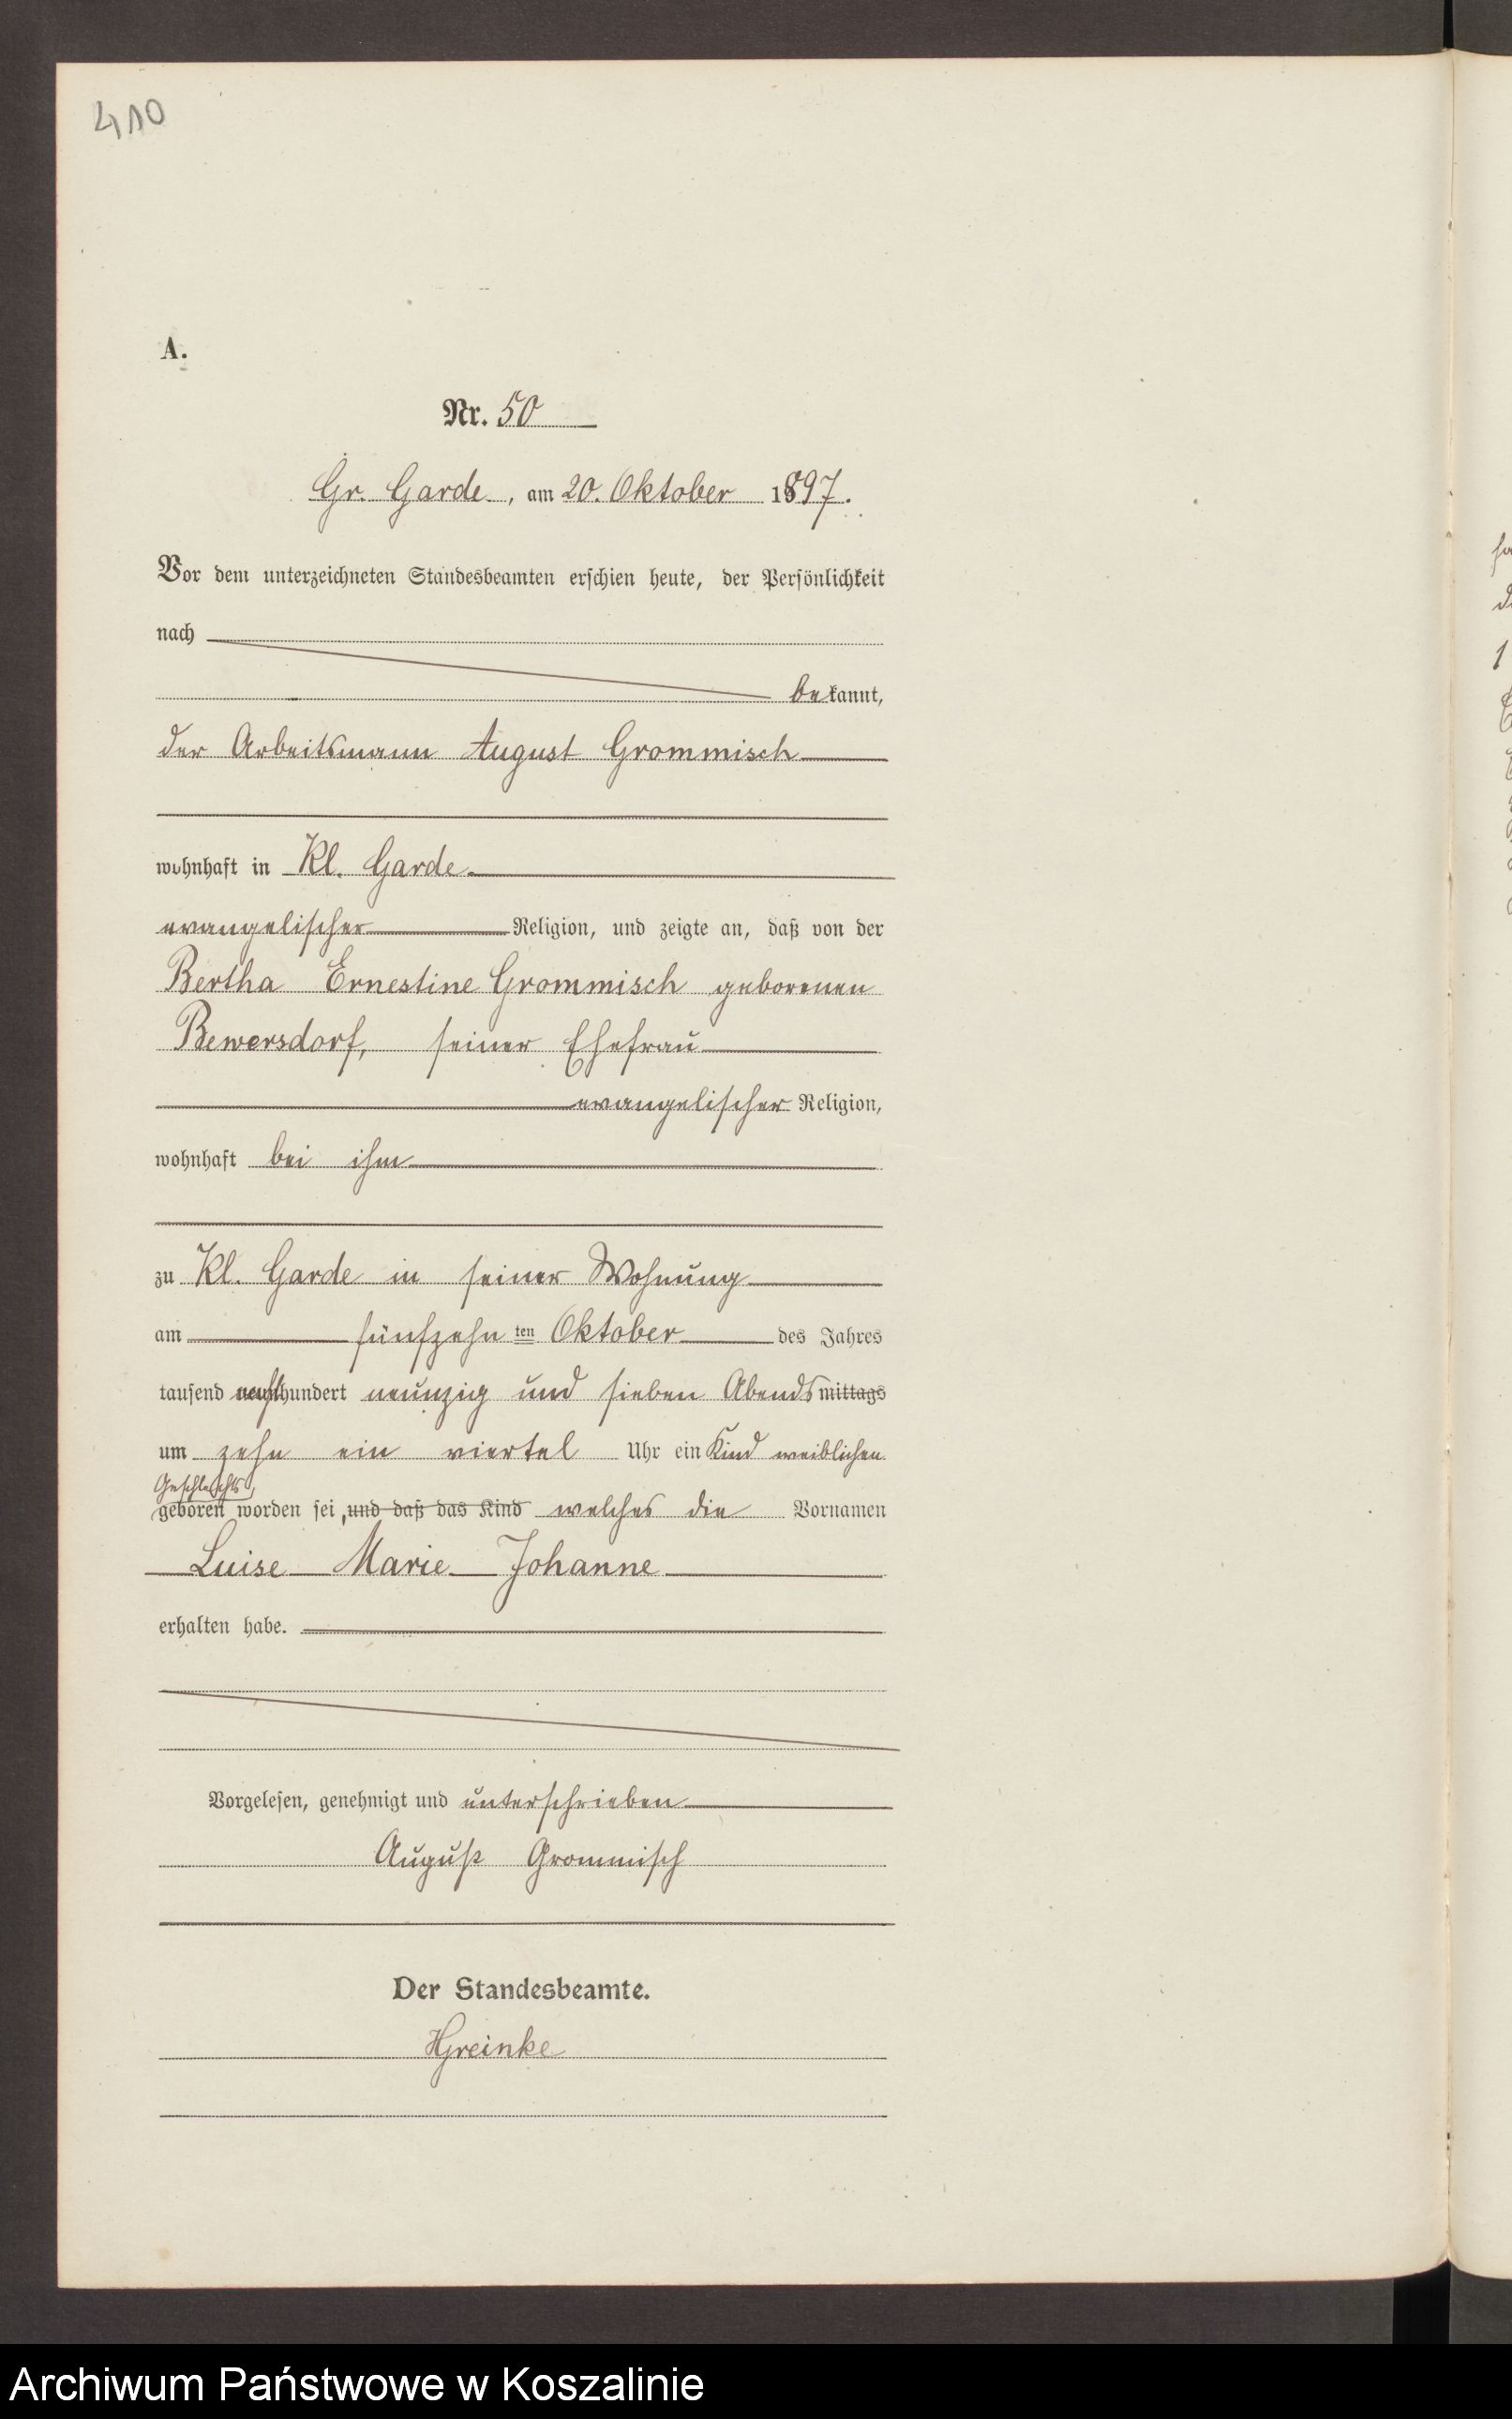 410
A.
Nr. 50
Gr. Garde, am 20. Oktober 1897.
Vor dem unterzeichneten Standesbeamten erschien heute, der Persönlichkeit
nach
bekannt,
der Arbeitsmann August Grommisch
wohnhaft in Kl. Garde
evangelischer Religion, und zeigte an, daß von der
Bertha Ernestine Grommisch geborenen
Bewersdorf, seiner Ehefrau
evangelischer Religion,
wohnhaft bei ihm
zu Kl. Garde in seiner Wohnung
am fünfzehn ten Oktober des Jahres
tausend achthundert neunzig und sieben Abends mittags
um zehn ein viertel Uhr ein Kind weiblichen
Geschlechts
geboren worden sei, und daß das Kind welches die Vornamen
Luise Marie Johanne
erhalten habe.
Vorgelesen, genehmigt und unterschrieben
August Grommisch
Der Standesbeamte.
HGreinke
Archiwum Państwowe w Koszalinie